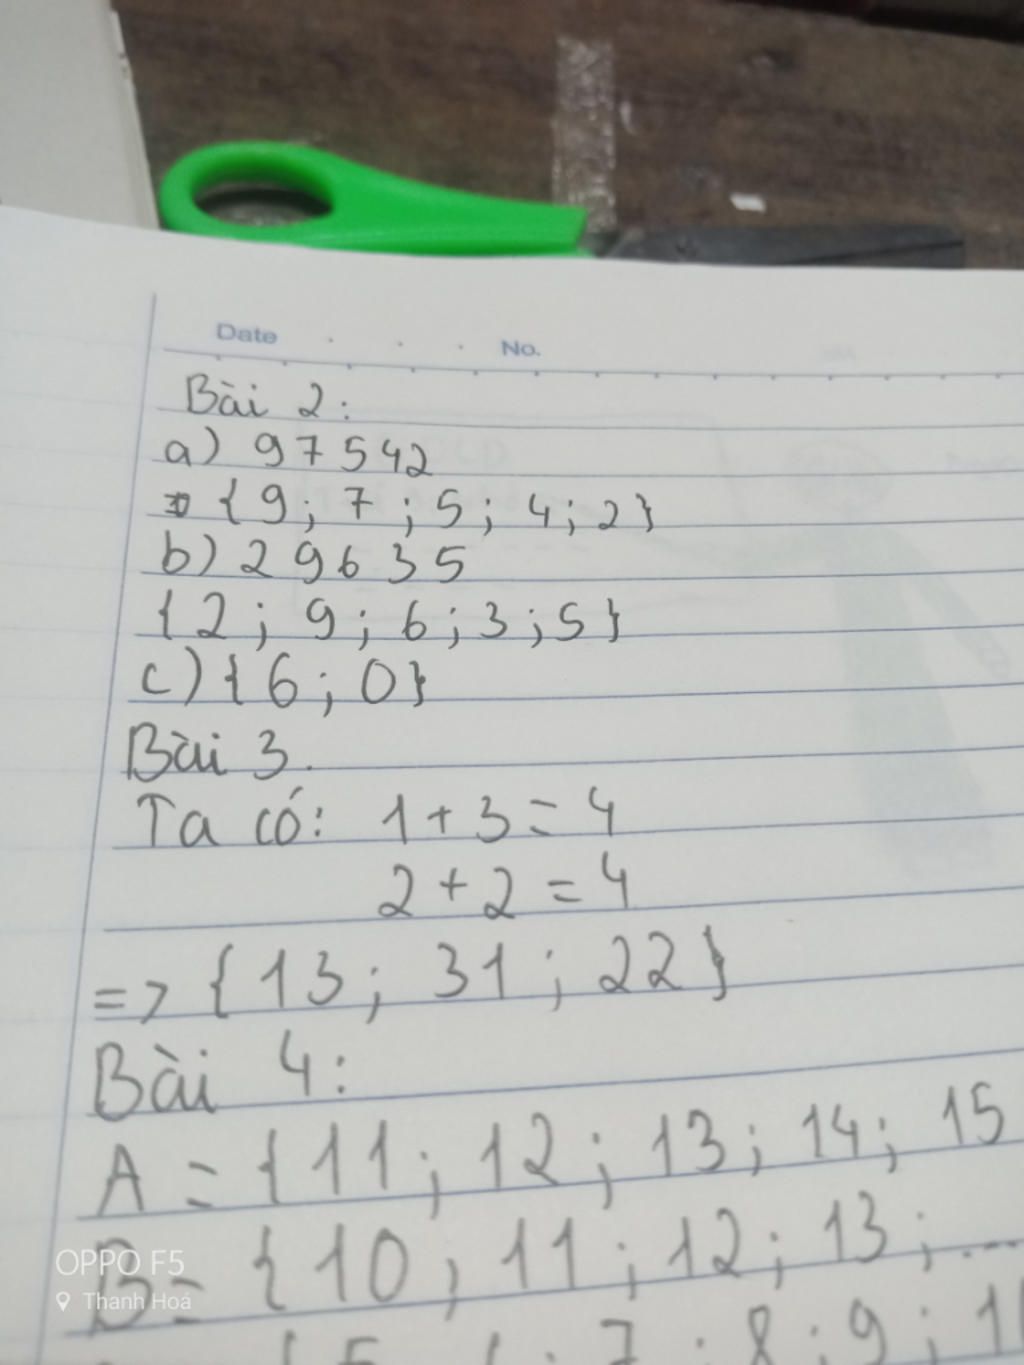 Date No.
Bài 2:
a) 97542
{9; 7; 5; 4; 2}
b) 29635
{2; 9; 6; 3; 5}
c) {6; 0}
Bài 3.
Ta có: 1+3=4
2+2=4
=> {13; 31; 22}
Bài 4:
A = {11; 12; 13; 14; 15
B = {10; 11; 12; 13; ...
7; 8; 9;
OPPO F5
Thanh Hoá